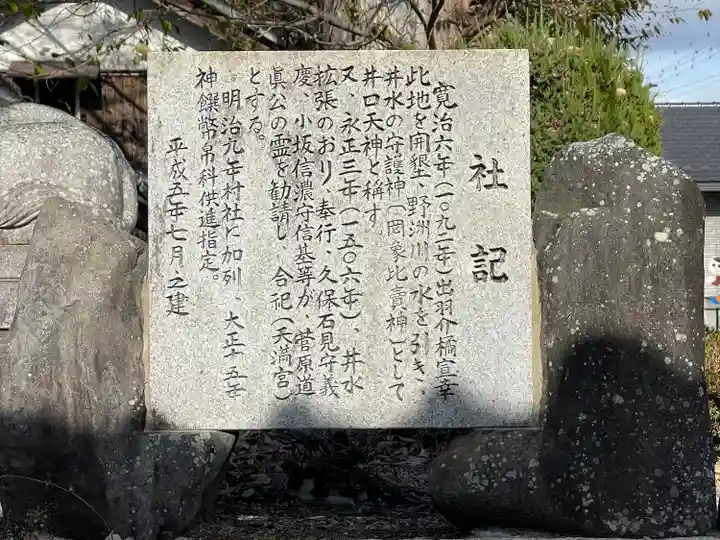 社記
寛治六年(一〇九二年)出羽介橘宣幸
此地を開墾、野洲川の水を引き、
井水の守護神(罔象比売神)として
井口天神と称す。
又、永正三年(一五〇六年)、井水
拡張のおり、奉行、久保石見守義
慶、小坂信濃守信基等が、菅原道
眞公の霊を勧請し、合祀(天満宮)
とする。
明治九年村社に加列、大正十五年
神饌幣帛料供進指定。
平成五年七月之建